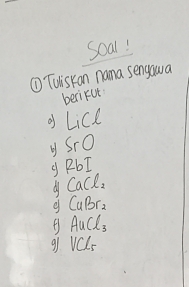 Soal !
① Tuliskan nama senyawa
berikut:
a) LiCl
b) SrO
c) RbI
d) CaCl₂
e) CuBr₂
f) AuCl₃
g) VCl₅